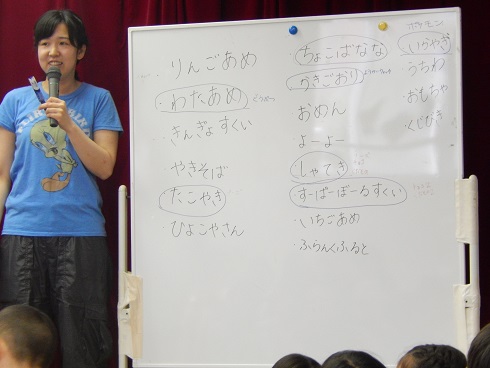 りんごあめ
わたあめ
きんぎょすくい
やきそば
たこやき
ひよこやさん
ちょこばなな
かきごおり
おめん
よーよー
しゃてき
すーぱーぼーるすくい
いちごあめ
ふらんくふると
ポケモン
いかやき
うちわ
おもちゃ
くじびき